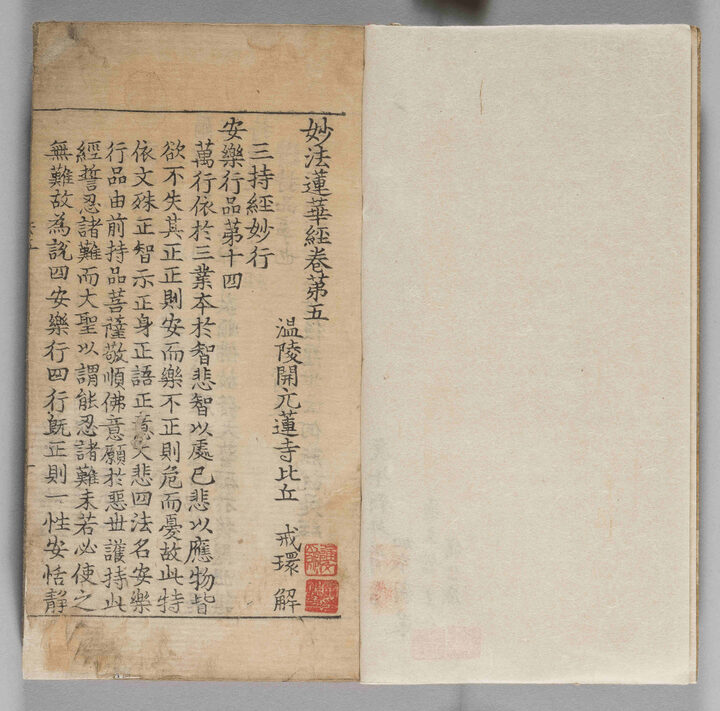 妙法蓮華經卷第五
溫陵開元蓮寺比丘 戒環 解
三持經妙行
安樂行品第十四
萬行依於三業本於智悲智以處己悲以應物皆
欲不失其正正則安而樂不正則危而憂故此特
依文殊正智示正身正語正意大悲四法名安樂
行品由前持品菩薩敬順佛意願於惡世護持此
經誓忍諸難而大聖以謂能忍諸難未若必使之
無難故為說四安樂行四行旣正則一性安恬靜